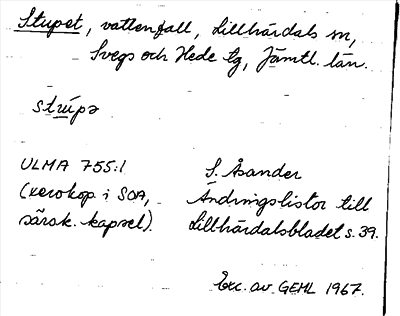 Stupet, vattenfall, Lillhärdals sn,
Svegs och Hede tg, Jämtl. län.
strúpə
ULMA 755:1
(xerokop. i SOA,
särsk. kapsel).
S. Åsander
Ändringslistor till
Lillhärdalsbladet s. 39.
Exc. av GEHL 1967.